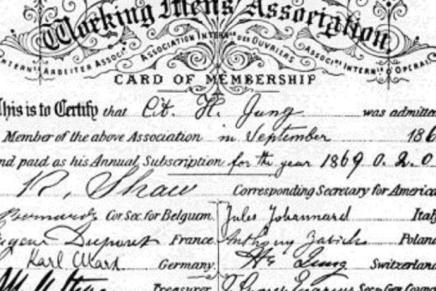 Working Mens Association
INTERN ARBEITER ASSOC ASSOCIATION INTERN DES OUVRIERS ASSOC INTERN D'OPERAI
CARD OF MEMBERSHIP
This is to Certify that Cit. H. Jung was admitted
Member of the above Association in September 186
nd paid as his Annual Subscription for the year 1869 0.2.0
R. Shaw Corresponding Secretary for America
Bernard Cor. Sec. for Belgium. Jules Johannard Italy
Eugene Dupont France. Anthony Zabicki Poland
Karl Marx Germany. H. Jung Switzerland
Treasurer. Sec. Gen. Council